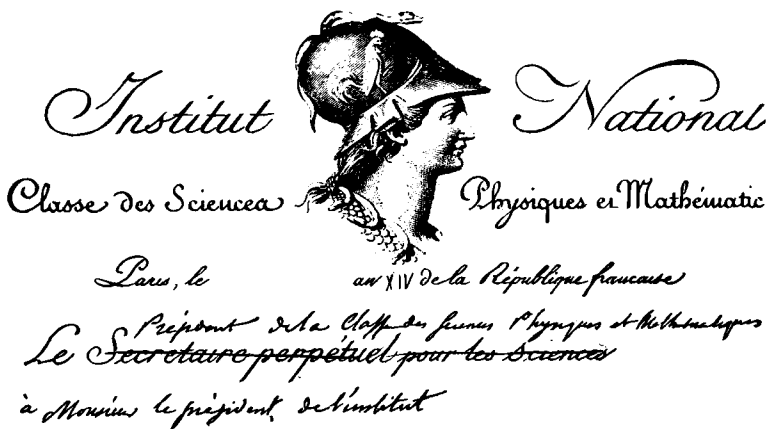 Institut National
Classe des Sciences Physiques et Mathématic
Paris, le an XIV de la République française
Président de la Classe des Sciences Physiques et Mathematiques
Le Secretaire perpétuel pour les Sciences
à Monsieur le président de l'institut